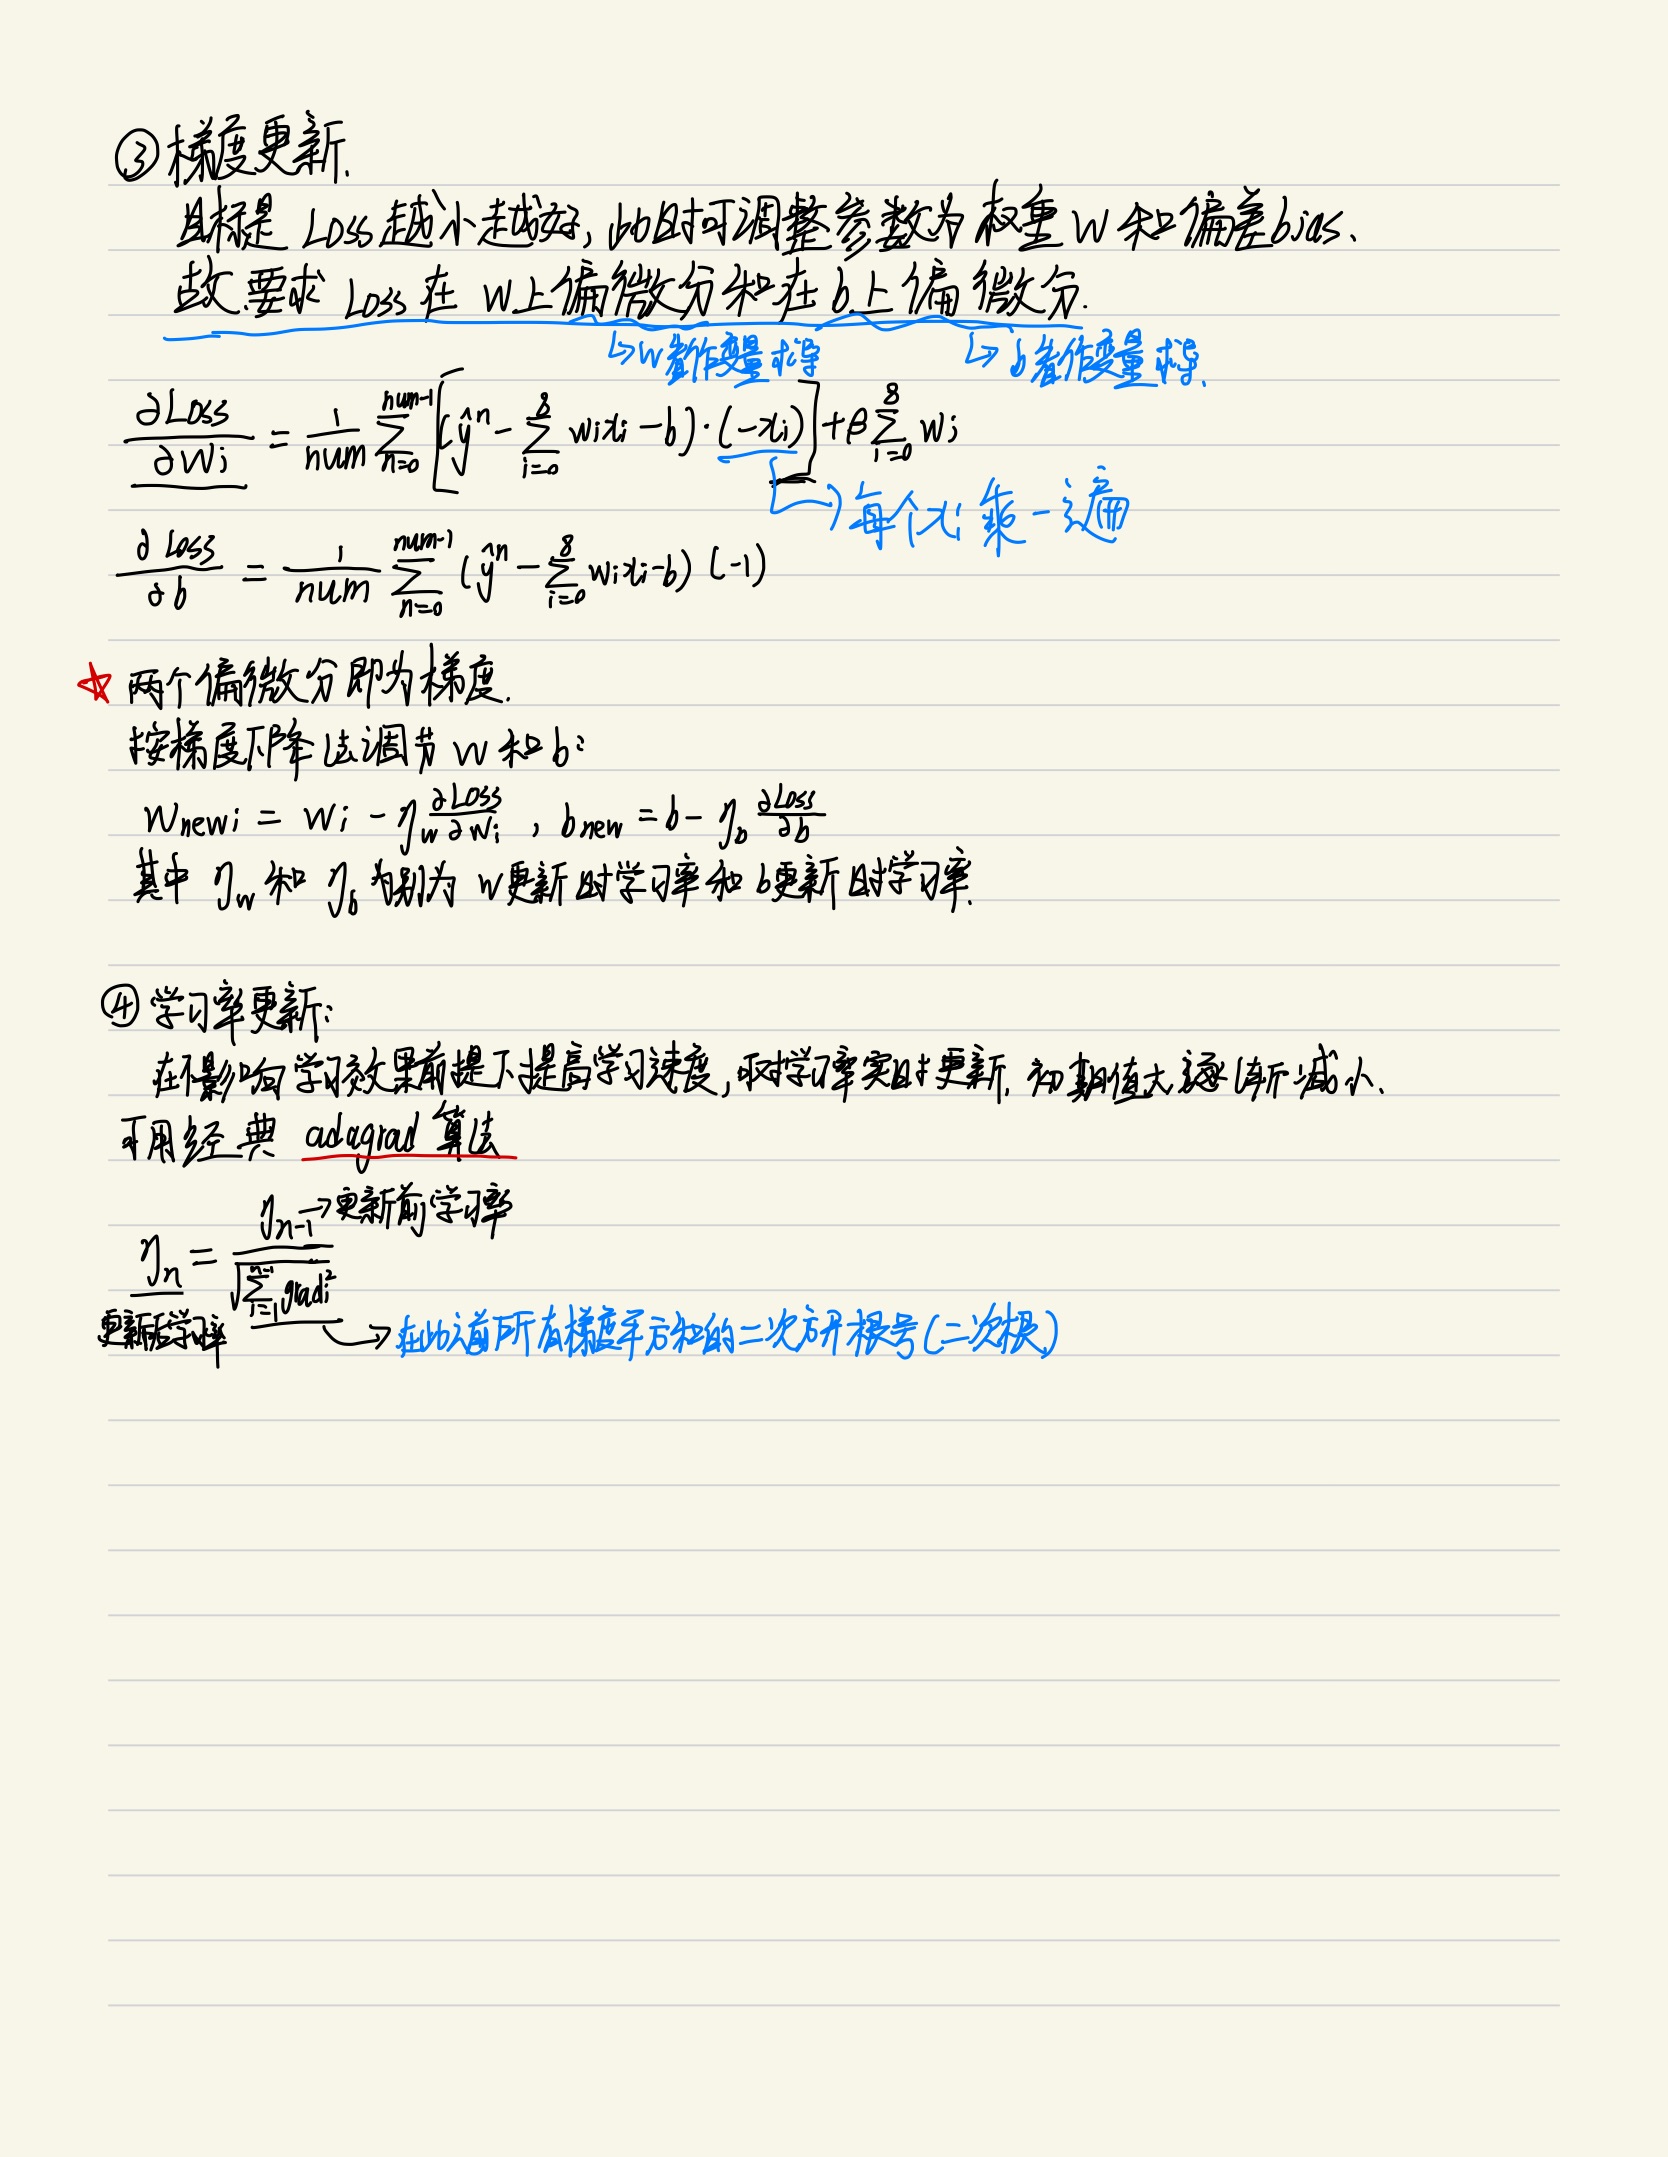 ③梯度更新.
目标是 Loss越小越好, 此时可调整参数为 权重 w 和偏差bias.
故要求 Loss 在 w上偏微分和在 b上偏微分.
↳w看作变量求导 ↳b看作变量求导.
∂Loss/∂wi = 1/num ∑_{n=0}^{num-1} [(ŷ^n - ∑_{i=0}^{8} wixi - b)·(-xi)] + β∑_{i=0}^{8} wi
↳每个xi乘一遍
∂Loss/∂b = 1/num ∑_{n=0}^{num-1} (ŷ^n - ∑_{i=0}^{8} wixi-b) (-1)
☆ 两个偏微分即为梯度.
按梯度下降法调节 w 和 b:
w_{new i} = wi - η_w ∂Loss/∂wi , b_{new} = b - η_b ∂Loss/∂b
其中 η_w 和 η_b 为别为 w更新时学习率和 b更新时学习率.
④学习率更新:
在不影响学习效果前提下提高学习速度, 取对学习率实时更新, 初期值大逐渐减小.
可用经典 adagrad 算法
η_n = η_{n-1} / √(∑_{i=1}^{n-1} grad_i^2)
→更新前学习率
更新后学习率
→在此之前所有梯度平方和的二次方开根号(二次根)